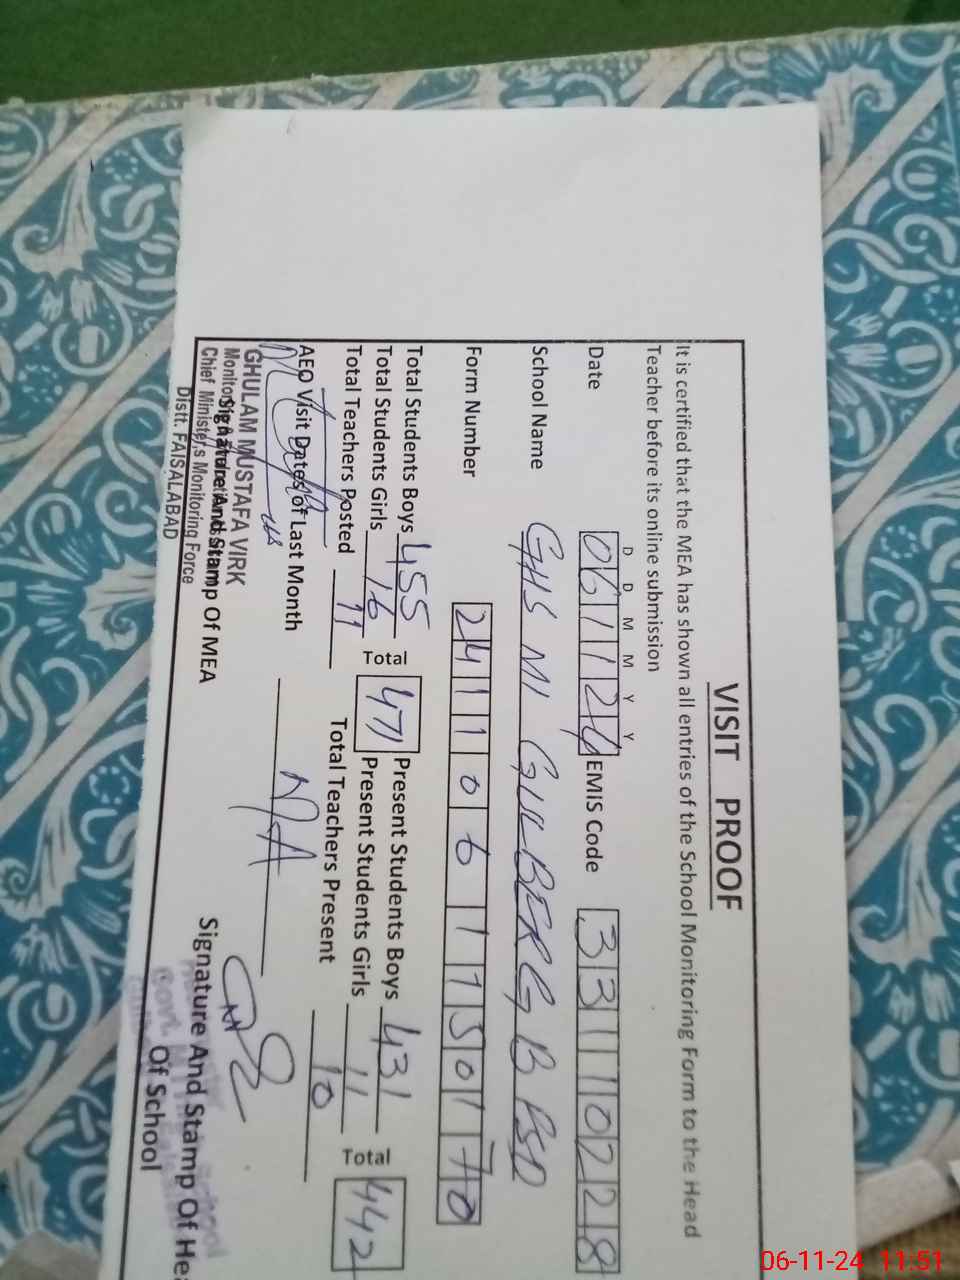 VISIT PROOF
It is certified that the MEA has shown all entries of the School Monitoring Form to the Head
Teacher before its online submission
D D M M Y Y
Date 061124 EMIS Code 33110228
School Name GHS MI GULBERG B FSD
Form Number 2411061150170
Total Students Boys 455 Total 471 Present Students Boys 431 Total 442
Total Students Girls 16 Present Students Girls 11
Total Teachers Posted 11 Total Teachers Present 10
AEO Visit Dates of Last Month N/A
GHULAM MUSTAFA VIRK
Monitoring &
Signature And Stamp Of MEA
Chief Minister,s Monitoring Force
Distt. FAISALABAD
Signature And Stamp Of Hea
Of School
Govt.
06-11-24 11:51